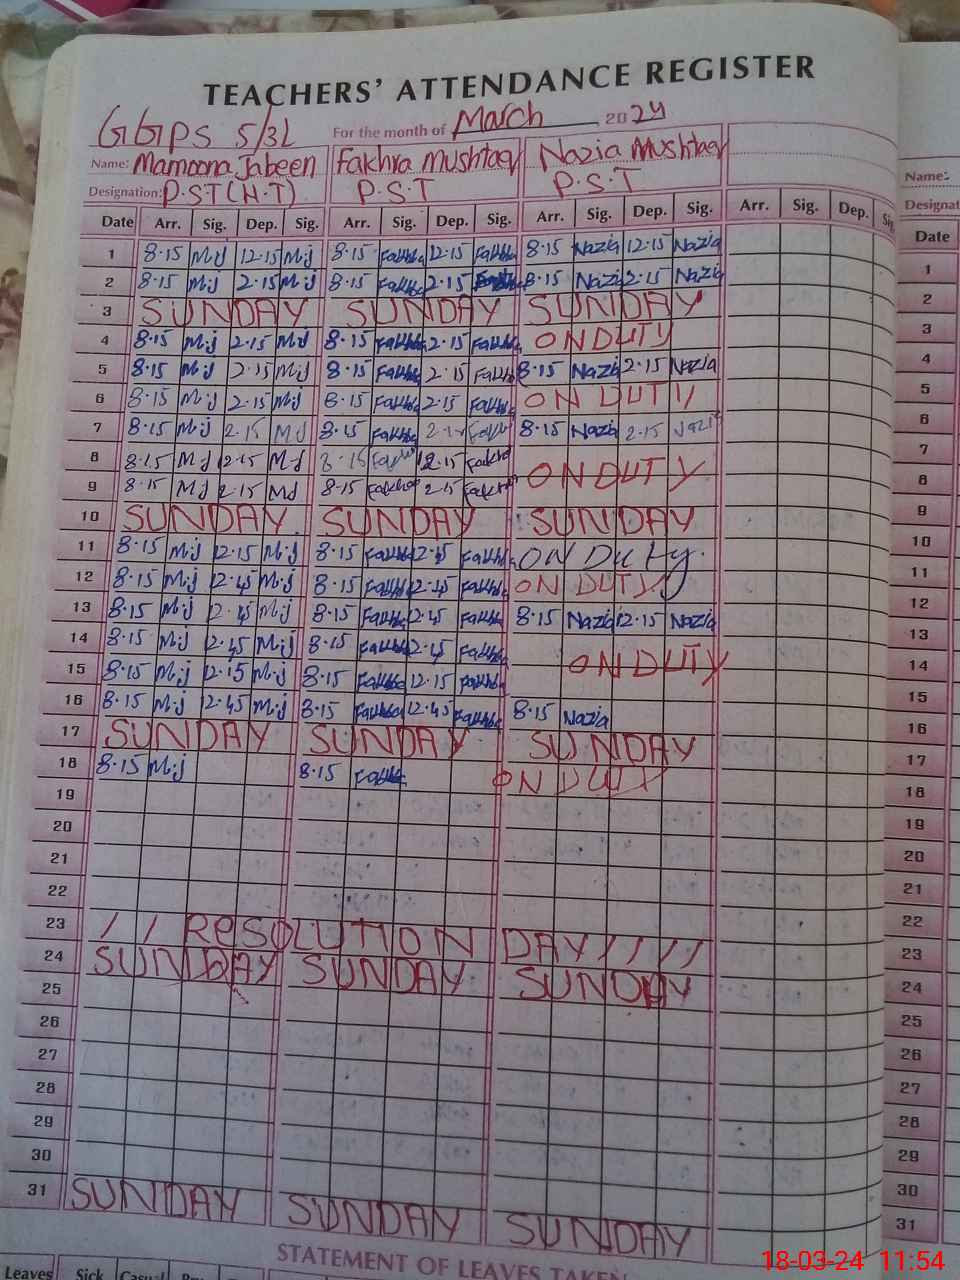 TEACHERS' ATTENDANCE REGISTER
GGPS 5/3L For the month of March 2024
Name: Mamoona Jabeen Fakhra Mushtaq Nazia Mushtaq Name:
Designation: P.ST(H.T) P.S.T P.S.T Designat
Date Arr. Sig. Dep. Sig. Arr. Sig. Dep. Sig. Arr. Sig. Dep. Sig. Arr. Sig. Dep. Sig. Date
1 8.15 M.j 12.15 M.j 8.15 12.15 8.15 Nazia 12.15 Nazia 1
2 8.15 M.j 2.15 M.j 8.15 2.15 8.15 Nazia 2.15 Nazia 2
3 SUNDAY SUNDAY SUNDAY 3
4 8.15 M.j 2.15 M.j 8.15 2.15 ON DUTY 4
5 8.15 M.j 2.15 M.j 8.15 2.15 8.15 Nazia 2.15 Nazia 5
6 8.15 M.j 2.15 M.j 8.15 2.15 ON DUTY 6
7 8.15 M.j 2.15 M.j 8.15 8.15 Nazia 2.15 Nazia 7
8 8.15 M.j 12.15 M.j 8.15 12.15 ON DUTY 8
9 8.15 M.j 2.15 M.j 8.15 2.15 9
10 SUNDAY SUNDAY SUNDAY 10
11 8.15 M.j 12.15 M.j 8.15 12.45 ON DUTY. 11
12 8.15 M.j 12.45 M.j 8.15 12.45 ON DUTY 12
13 8.15 M.j 12.45 M.j 8.15 12.45 8.15 Nazia 12.15 Nazia 13
14 8.15 M.j 12.45 M.j 8.15 12.45 ON DUTY 14
15 8.15 M.j 12.15 M.j 8.15 12.15 15
16 8.15 M.j 12.45 M.j 8.15 12.45 8.15 Nazia 16
17 SUNDAY SUNDAY SUNDAY 17
18 8.15 M.j 8.15 ON DUTY 18
19 19
20 20
21 21
22 22
23 / / RESOLUTION DAY / / / / 23
24 SUNDAY SUNDAY SUNDAY 24
25 25
26 26
27 27
28 28
29 29
30 30
31 SUNDAY SUNDAY SUNDAY 31
STATEMENT OF LEAVES TAKEN
Leaves Sick Casual
18-03-24 11:54